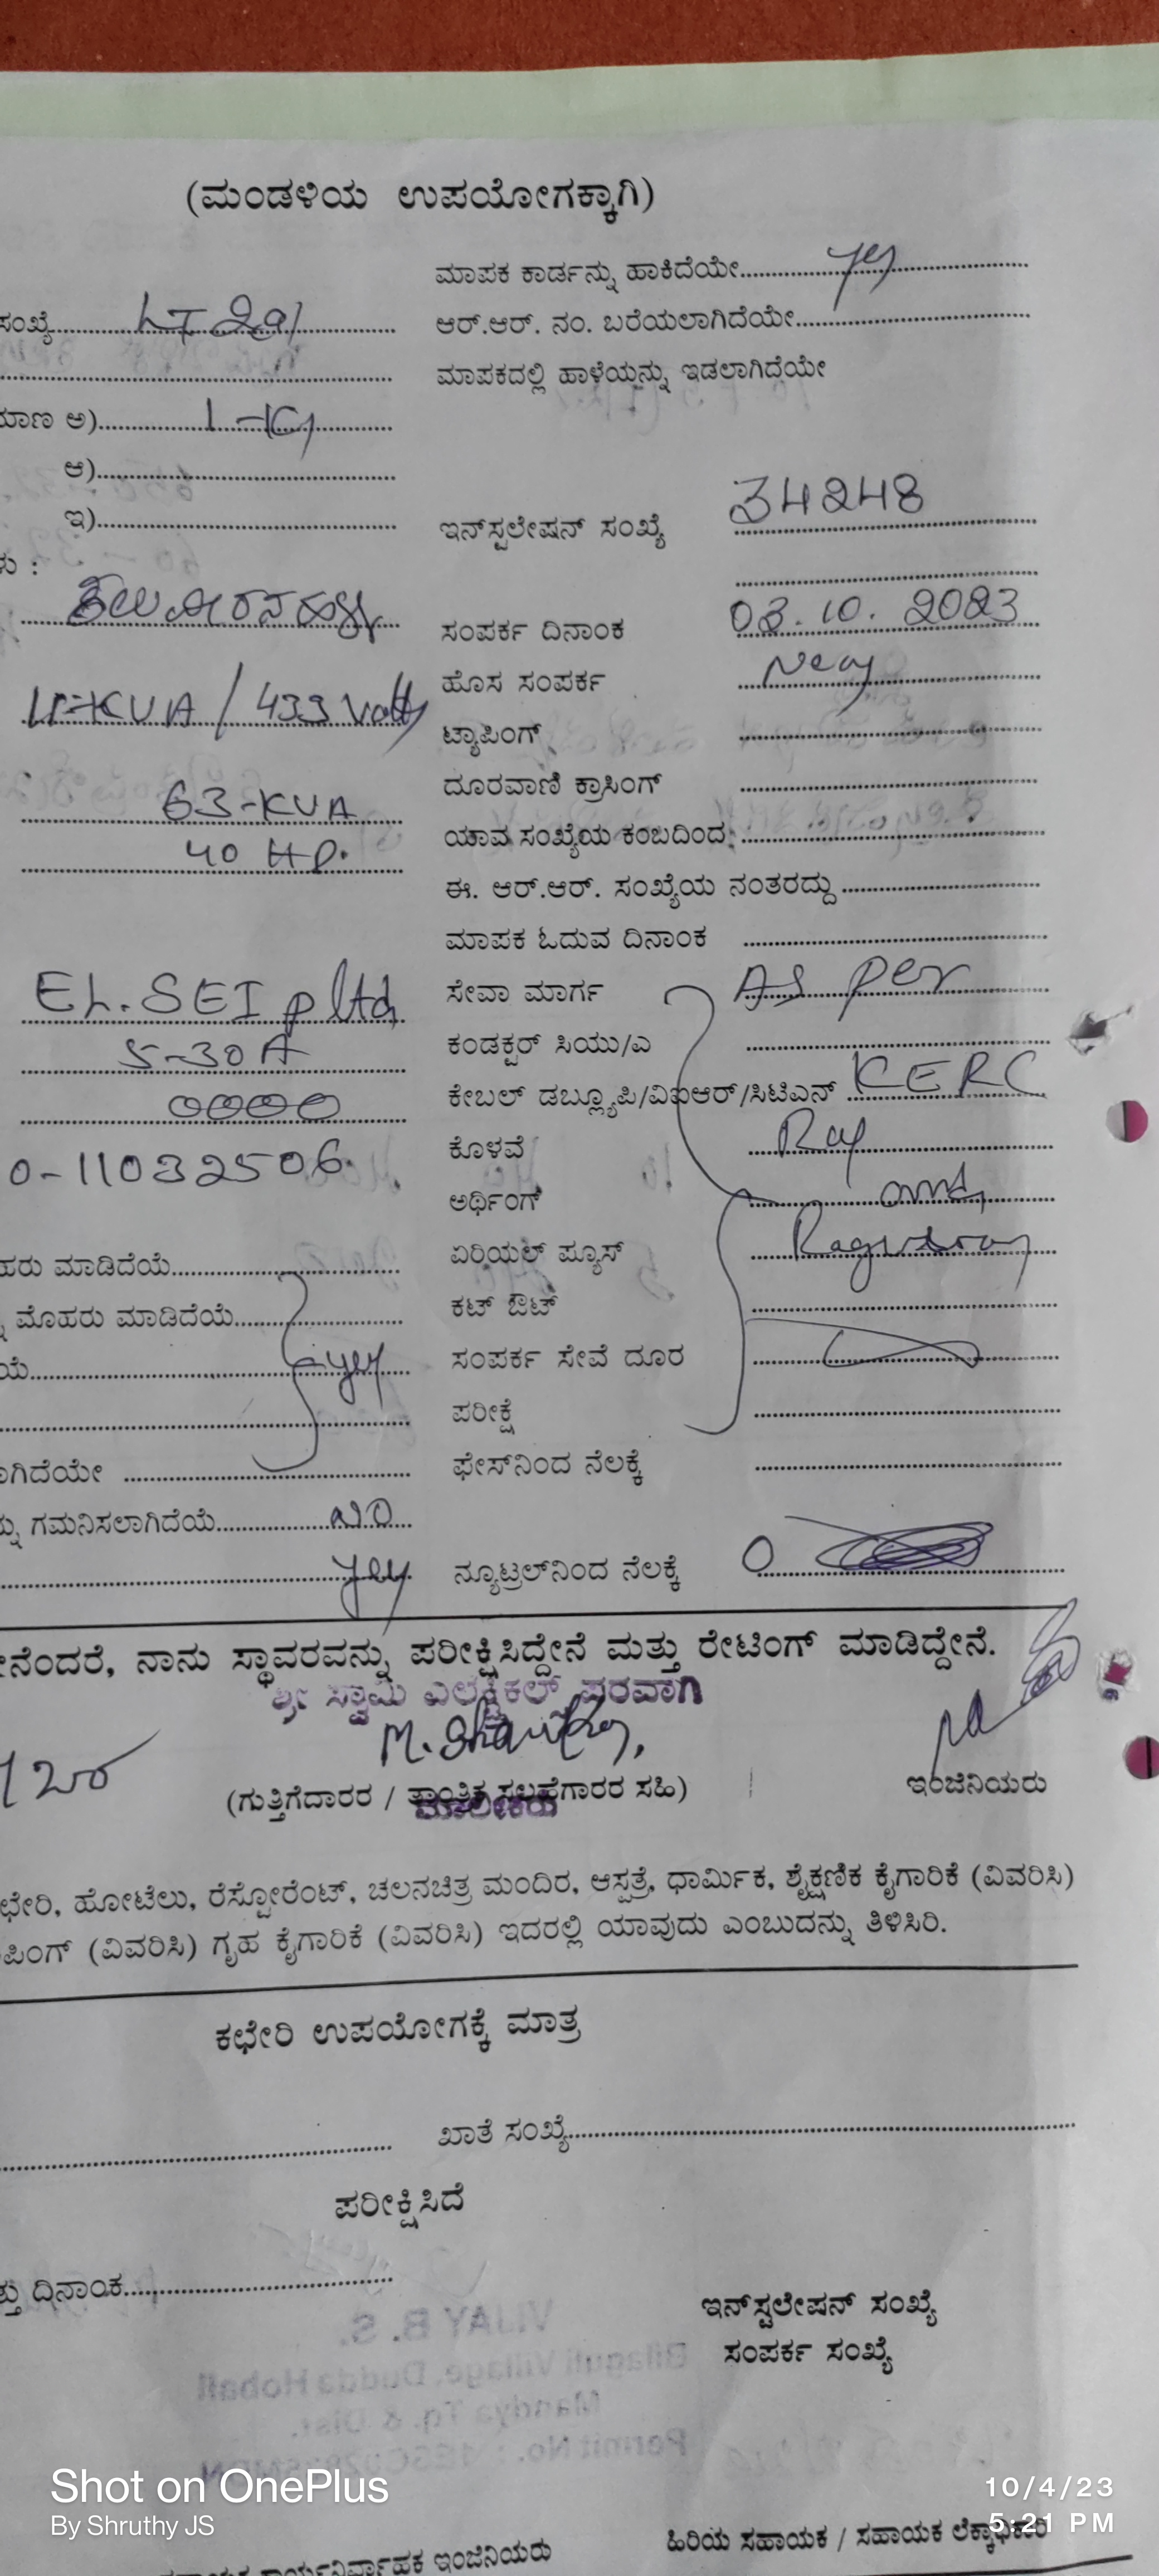 (ಮಂಡಳಿಯ ಉಪಯೋಗಕ್ಕಾಗಿ)
ಮಾಪಕ ಕಾರ್ಡನ್ನು ಹಾಕಿದೆಯೇ.......... yes
ಸಂಖ್ಯೆ..........
ಆರ್.ಆರ್. ನಂ. ಬರೆಯಲಾಗಿದೆಯೇ..........
ಮಾಪಕದಲ್ಲಿ ಹಾಳೆಯನ್ನು ಇಡಲಾಗಿದೆಯೇ
ಅ)..........
ಆ)..........
ಇ)..........
ಇನ್‌ಸ್ಟಲೇಷನ್ ಸಂಖ್ಯೆ 34248
ಸಂಪರ್ಕ ದಿನಾಂಕ 03.10.2023
ಹೊಸ ಸಂಪರ್ಕ New
KVA / 433 Volts
ಟ್ಯಾಪಿಂಗ್
ದೂರವಾಣಿ ಕ್ರಾಸಿಂಗ್
63-KVA
ಯಾವ ಸಂಖ್ಯೆಯ ಕಂಬದಿಂದ
40 HP.
ಈ. ಆರ್.ಆರ್. ಸಂಖ್ಯೆಯ ನಂತರದ್ದು
ಮಾಪಕ ಓದುವ ದಿನಾಂಕ
ಸೇವಾ ಮಾರ್ಗ As per
5-30 A
ಕಂಡಕ್ಟರ್ ಸಿಯು/ಎ
0000
ಕೇಬಲ್ ಡಬ್ಲ್ಯೂಪಿ/ವಿಐಆರ್/ಸಿಟಿಎನ್ KERC
0-11032506.
ಕೊಳವೆ
ಅರ್ಥಿಂಗ್ and
ಏರಿಯಲ್ ಪ್ಯೂಸ್
ಹರು ಮಾಡಿದೆಯೆ..........
ಮೊಹರು ಮಾಡಿದೆಯೆ..........
ಕಟ್ ಔಟ್
yes
ಸಂಪರ್ಕ ಸೇವೆ ದೂರ
ಪರೀಕ್ಷೆ
ಗಿದೆಯೇ ..........
ಫೇಸ್‌ನಿಂದ ನೆಲಕ್ಕೆ
ಗಮನಿಸಲಾಗಿದೆಯೆ.......... NO
yes
ನ್ಯೂಟ್ರಲ್‌ನಿಂದ ನೆಲಕ್ಕೆ 0
ನೆಂದರೆ, ನಾನು ಸ್ಥಾವರವನ್ನು ಪರೀಕ್ಷಿಸಿದ್ದೇನೆ ಮತ್ತು ರೇಟಿಂಗ್ ಮಾಡಿದ್ದೇನೆ.
ಶ್ರೀ ಸ್ವಾಮಿ ಎಲೆಕ್ಟ್ರಿಕಲ್ಸ್ ಪರವಾಗಿ
(ಗುತ್ತಿಗೆದಾರರ / ತಾಂತ್ರಿಕ ಸಲಹೆಗಾರರ ಸಹಿ)
ಮಾಲೀಕರು
ಇಂಜಿನಿಯರು
ಛೇರಿ, ಹೋಟೆಲು, ರೆಸ್ಟೋರೆಂಟ್, ಚಲನಚಿತ್ರ ಮಂದಿರ, ಆಸ್ಪತ್ರೆ, ಧಾರ್ಮಿಕ, ಶೈಕ್ಷಣಿಕ ಕೈಗಾರಿಕೆ (ವಿವರಿಸಿ)
ಪಿಂಗ್ (ವಿವರಿಸಿ) ಗೃಹ ಕೈಗಾರಿಕೆ (ವಿವರಿಸಿ) ಇದರಲ್ಲಿ ಯಾವುದು ಎಂಬುದನ್ನು ತಿಳಿಸಿರಿ.
ಕಛೇರಿ ಉಪಯೋಗಕ್ಕೆ ಮಾತ್ರ
ಖಾತೆ ಸಂಖ್ಯೆ..........
ಪರೀಕ್ಷಿಸಿದೆ
ತ್ತು ದಿನಾಂಕ..........
ಇನ್‌ಸ್ಟಲೇಷನ್ ಸಂಖ್ಯೆ
ಸಂಪರ್ಕ ಸಂಖ್ಯೆ
VIJAY B. S.
Bilaguli Village, Dudda Hobali
Mandya Tq. & Dist.
Permit No.:
Shot on OnePlus
By Shruthy JS
10/4/23
5:21 PM
ಕಾರ್ಯನಿರ್ವಾಹಕ ಇಂಜಿನಿಯರು
ಹಿರಿಯ ಸಹಾಯಕ / ಸಹಾಯಕ ಲೆಕ್ಕಾಧಿಕಾರಿ